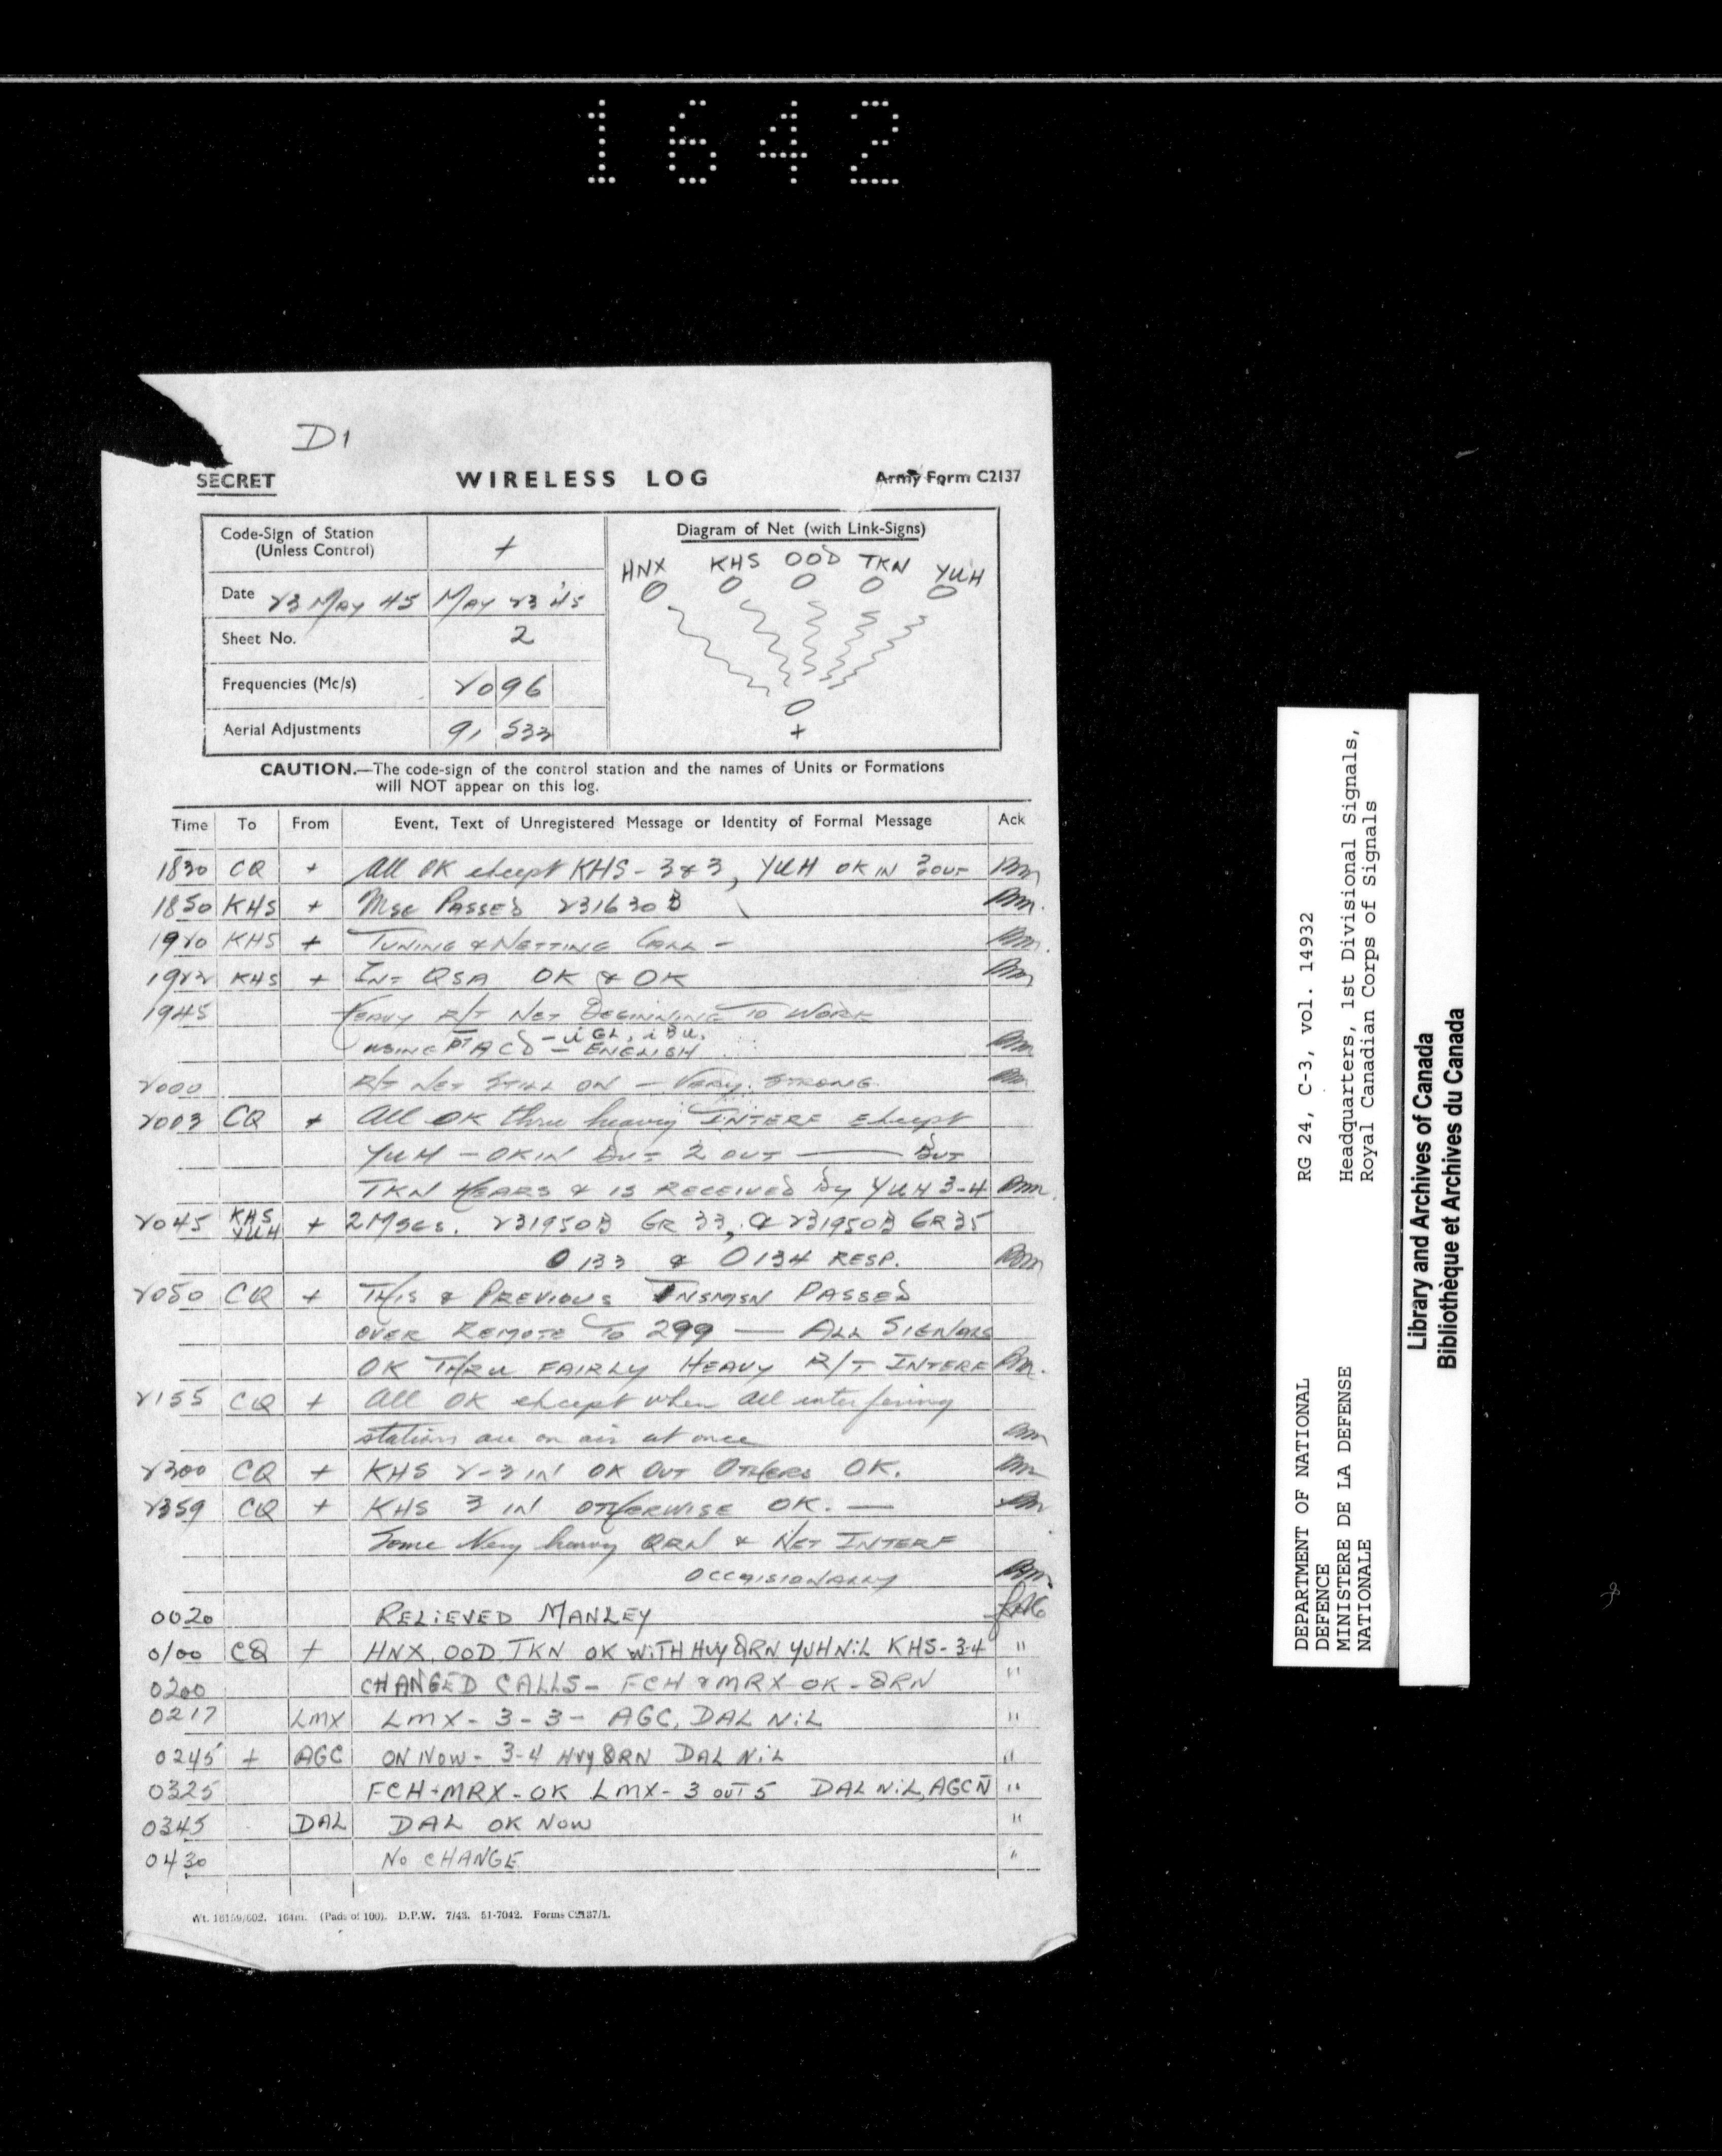 1642
D1
SECRET WIRELESS LOG Army Form C2137
Code-Sign of Station
(Unless Control) +
Date 23 May 45 May 23 '45
Sheet No. 2
Frequencies (Mc/s) 2096
Aerial Adjustments 91 533
Diagram of Net (with Link-Signs)
HNX KHS OOD TKN YUH
+
CAUTION.—The code-sign of the control station and the names of Units or Formations
will NOT appear on this log.
Time To From Event, Text of Unregistered Message or Identity of Formal Message Ack
1830 CQ + All OK except KHS - 3 & 3, YUH OK IN 3 OUT
1850 KHS + Msg PASSED 231630B
1920 KHS + TUNING & NETTING CALL -
1922 KHS + INT QSA OK & OK
1945 HEAVY R/T NET BEGINNING TO WORK
USING ENGLISH
2000 R/T NET STILL ON — VERY STRONG
2003 CQ + All OK thru heavy INTERF Except
YUH - OK IN BUT 2 OUT — BUT
TKN HEARS & IS RECEIVED By YUH 3-4
2045 KHS YUH + 2 MSGS. 231950B GR 33, & 231950B GR 35
O 133 & O 134 RESP.
2050 CQ + THIS & PREVIOUS TNSMSN PASSED
OVER REMOTE TO 299 — ALL SIGNALS
OK THRU FAIRLY HEAVY R/T INTERF
2155 CQ + All OK except when all interfering
stations are on air at once
2300 CQ + KHS 2-3 IN OK OUT OTHERS OK.
2359 CQ + KHS 3 IN OTHERWISE OK. —
Some Very heavy QRN & NET INTERF
OCCAISIONALLY
0020 RELIEVED MANLEY
0100 CQ + HNX, OOD TKN OK WITH HVY QRN YUH NIL KHS - 3-4 "
0200 CHANGED CALLS - FCH & MRX OK - QRN "
0217 LMX LMX - 3 - 3 - AGC, DAL NIL "
0245 + AGC ON NOW - 3-4 HVY QRN DAL NIL "
0325 FCH + MRX - OK LMX - 3 OUT 5 DAL NIL, AGC N "
0345 DAL DAL OK NOW "
0430 NO CHANGE "
Wt. 16159/602. 164m. (Pads of 100). D.P.W. 7/43. 51-7042. Forms C2137/1.
DEPARTMENT OF NATIONAL
DEFENCE
MINISTERE DE LA DEFENSE
NATIONALE
RG 24, C-3, vol. 14932
Headquarters, 1st Divisional Signals,
Royal Canadian Corps of Signals
Library and Archives of Canada
Bibliothèque et Archives du Canada